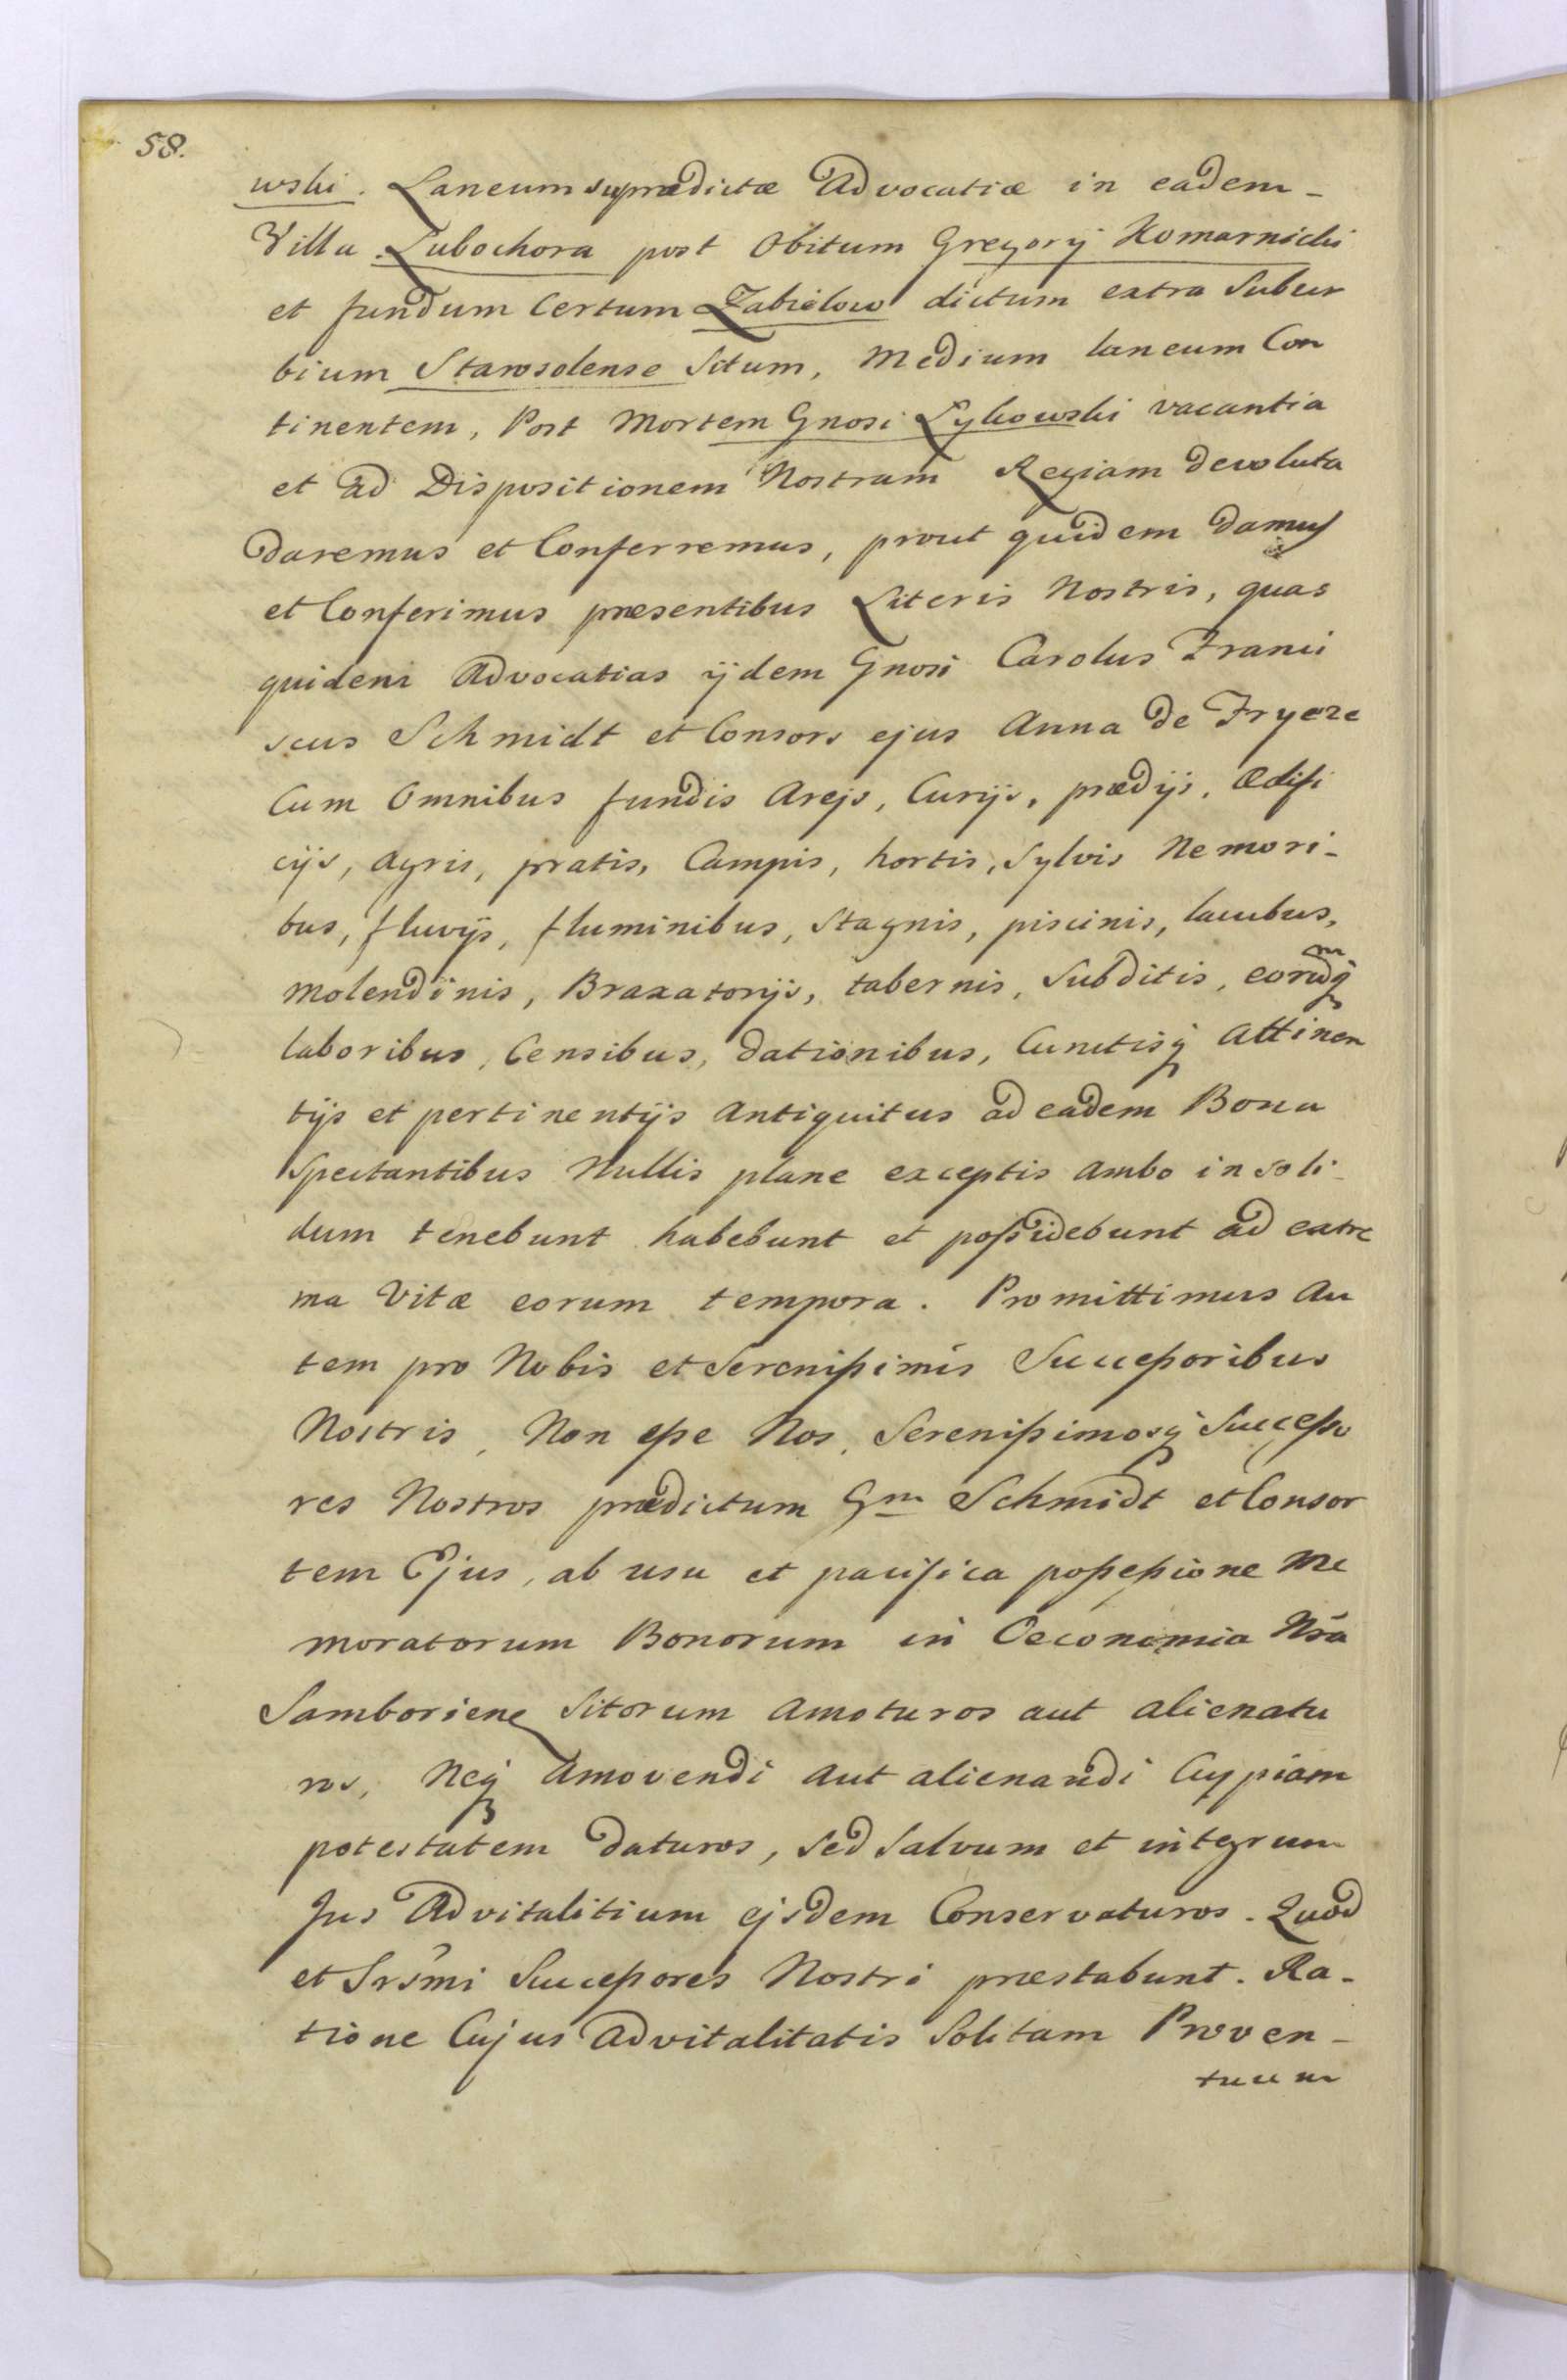 58.
wski. Laneum supradictæ Advocatiæ in eadem-
Villa. Lubochora post Obitum Gregorij Komarnicki
et fundum Certum Zabielow dictum extra Subur
bium Starosolense Situm, Medium laneum Con
tinentem, Post Mortem Gnosi Lykowski vacantia
et ad Dispositionem Nostram Regiam devoluta
daremus et Conferremus, prout quidem damus
et Conferimus præsentibus Literis Nostris, quas
quidem Advocatias ijdem Gnosi Carolus Franci
scus Schmidt et Consors ejus Anna de Fryeze
Cum Omnibus fundis Arejs, Curijs, prædijs, Ædifi
cijs, Agris, pratis, Campis, hortis, Sylvis Nemori-
bus, fluvijs, fluminibus, Stagnis, piscinis, lacubus,
Molendinis, Braxatorijs, tabernis, Subditis, eorumdq
laboribus, Censibus, dationibus, Cunctisq Attinen
tijs et pertinentijs Antiquitus ad eadem Bona
Spectantibus Nullis plane exceptis Ambo in soli-
dum tenebunt habebunt et possidebunt ad extre
ma Vitæ eorum tempora. Promittimus Au
tem pro Nobis et Serenissimis Successoribus
Nostris, Non esse Nos, Serenissimosq Successo
res Nostros prædictum Gm Schmidt et Consor
tem Ejus, ab usu et pacifica possessione Me
moratorum Bonorum in Oeconomia Nrã
Samboriene Sitorum Amoturos aut alienatu
ros, Neq Amovendi Aut alienandi Cuypiam
potestatem daturos, Sed Salvum et integrum
Jus Advitalitium ejsdem Conservaturos. Quod
et Srsmi Successores Nostri præstabunt. Ra-
tione Cujus Advitalitatis Solitam Proven-
tuum